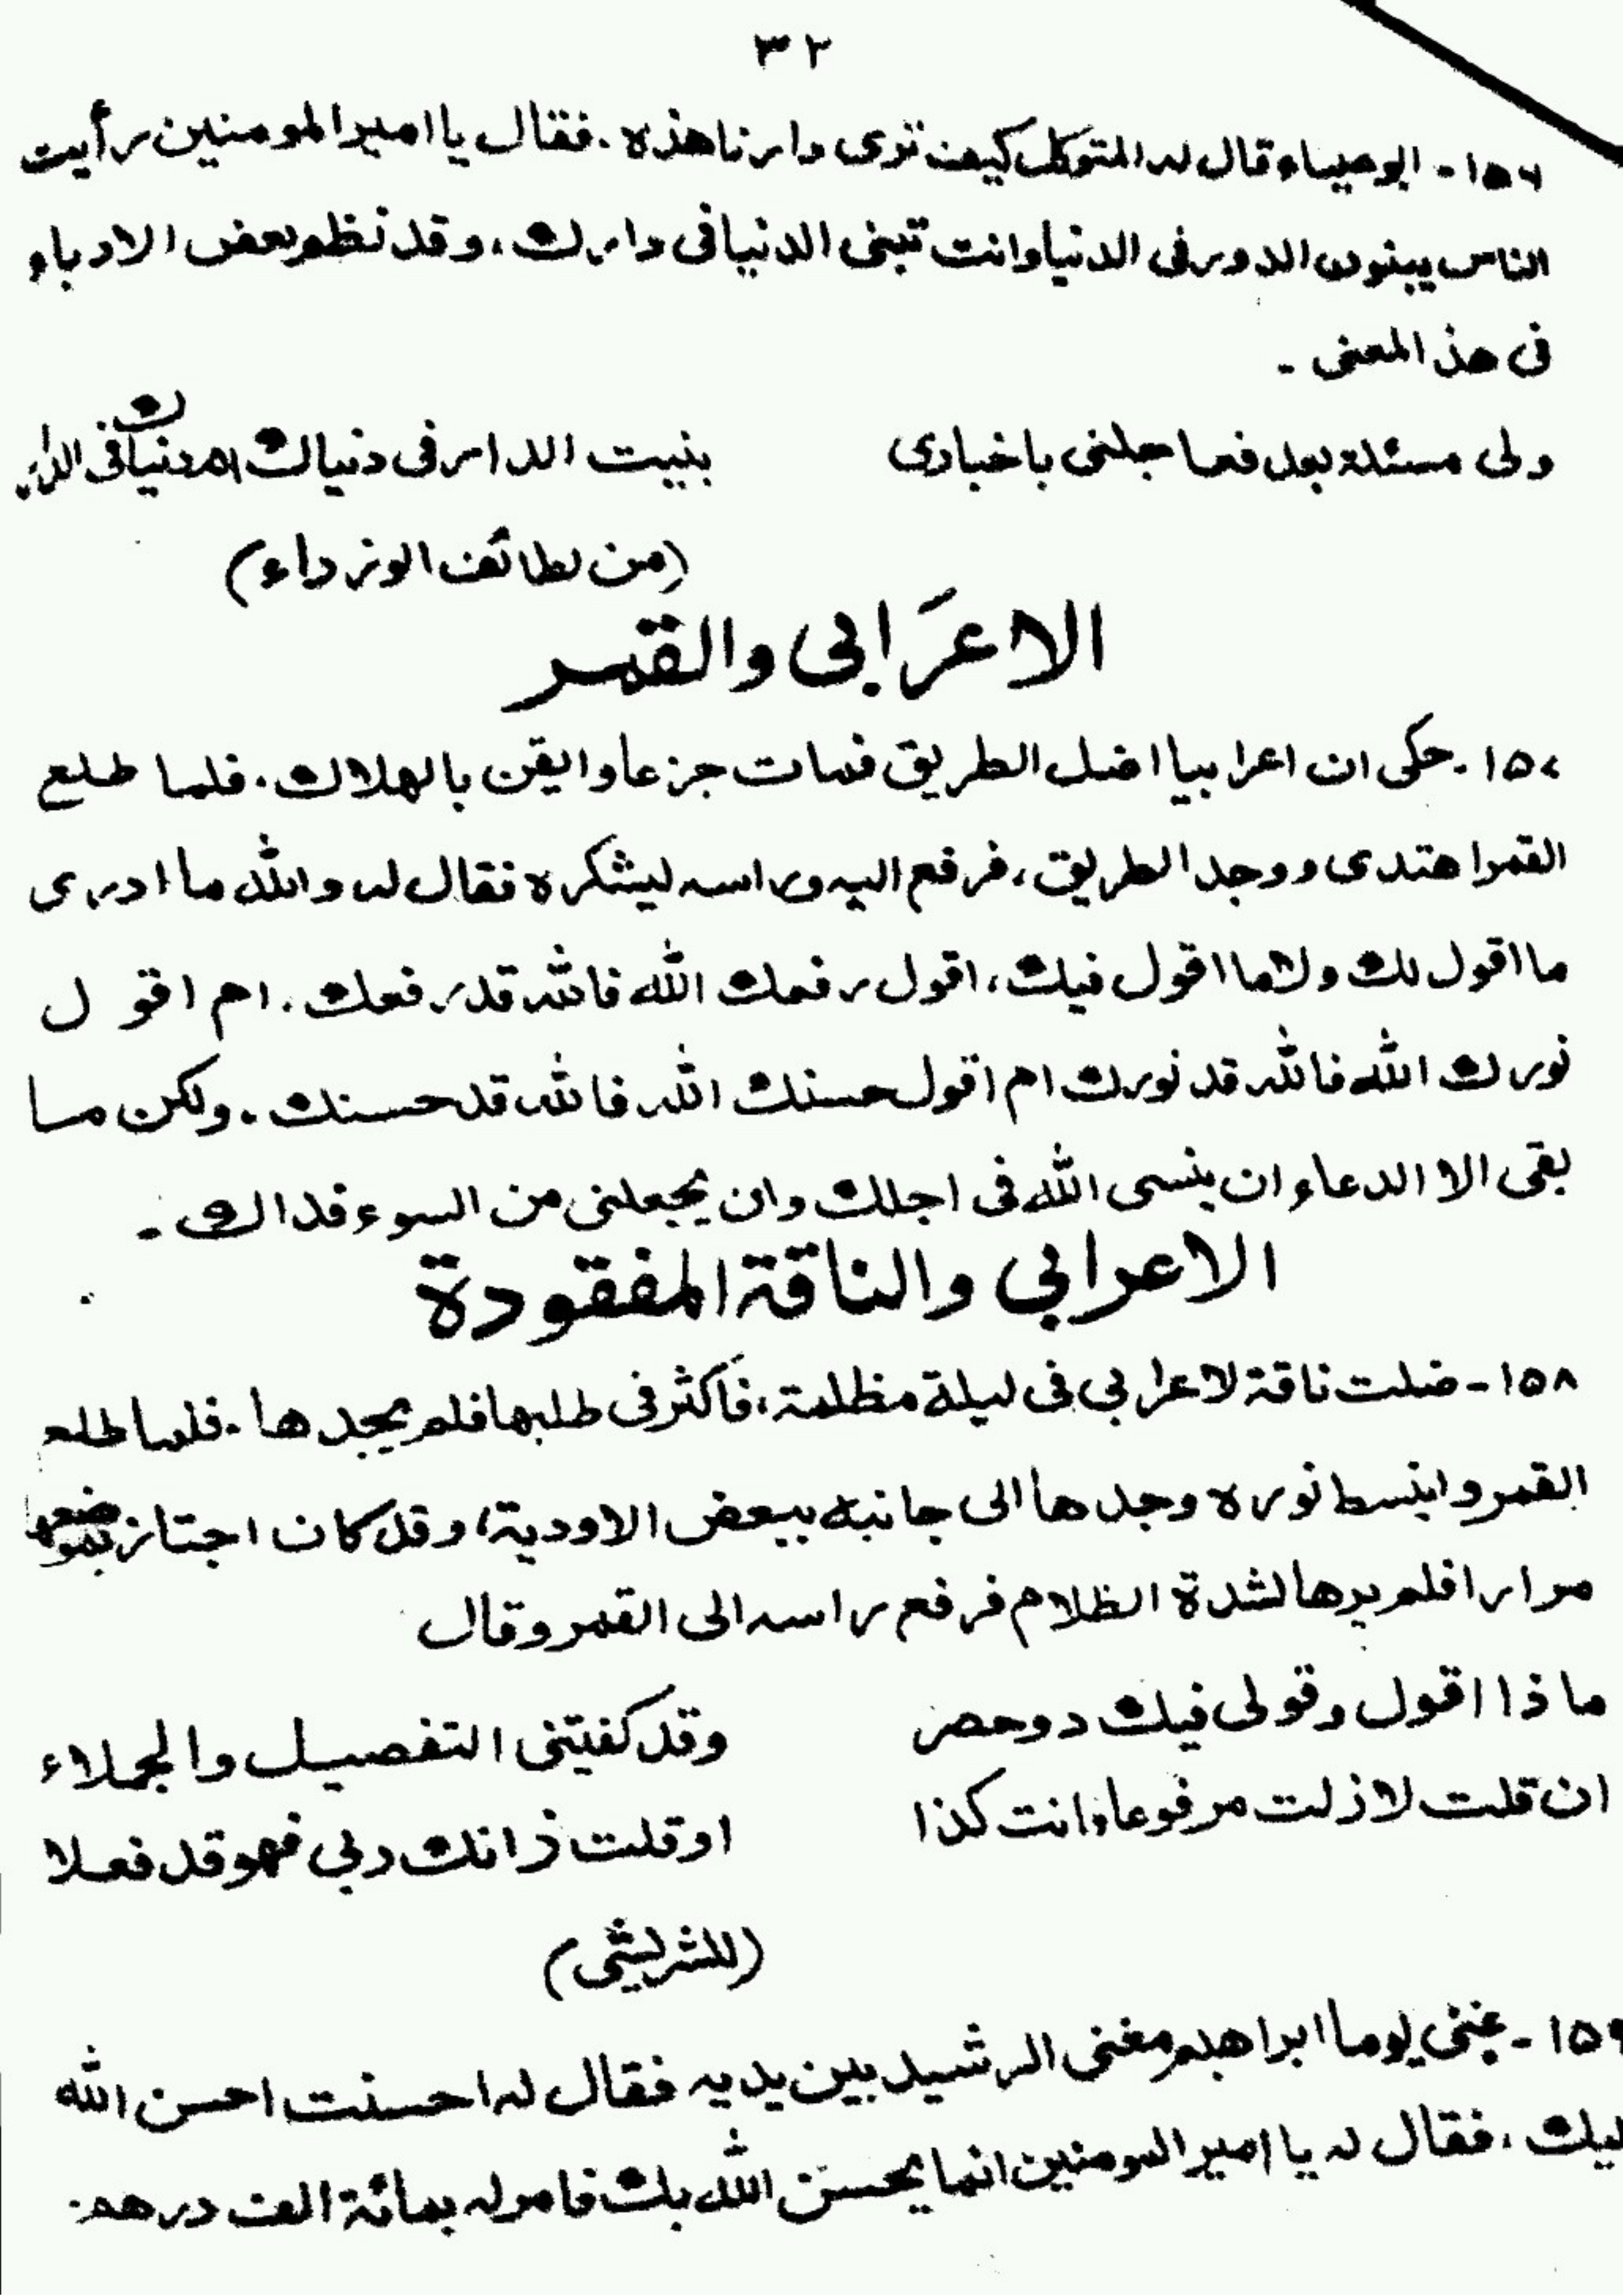 ٣٢
١٥٦- ابو عيناء قال له المتوكل كيف ترى دارنا هذه. فقال يا امير المومنين رأيت
الناس يبنون الدور فى الدنيا وانت تبنى الدنيا فى دارك، وقد نظم بعض الادباء
فى هذ المعنى -
ولى مسئلة بعد فما جلنى باخبارى بنيت الدار فى دنياك ام دنياك فى الدار
(من لطائف الوزراء)
الاعرَابى والقمر
١٥٧- حكى ان اعرابيا اضل الطريق فمات جزعا وايقن بالهلاك. فلما طلع
القمر اهتدى ووجد الطريق، فرفع اليه راسه ليشكره فقال له والله ما ادرى
ما اقول لك ولا ما اقول فيك، اقول رفعك الله فالله قد رفعك. ام اقول
نورك الله فالله قد نورك ام اقول حسنك الله فالله قد حسنك. ولكن ما
بقى الا الدعاء ان ينسى الله فى اجلك وان يجعلنى من السوء فداك -
الاعرابي والناقة المفقودة
١٥٨- ضلت ناقة لاعرابي فى ليلة مظلمة، فاَكثر فى طلبها فلم يجدها. فلما طلع
القمر وانبسط نوره وجدها الى جانبه ببعض الاودية، وقد كان اجتاز بموضعها
مرارا فلم يرها لشدة الظلام فرفع راسه الى القمر وقال
ماذا اقول وقولى فيك دوحصر وقد كفيتنى التفصيل والجملاء
ان قلت لازلت مرفوعا وانت كذا او قلت زانك ربي فهو قد فعلا
(للشريشى)
١٥٩- غنى يوما ابراهيم مغنى الرشيد بين يديه فقال له احسنت احسن الله
ليك، فقال له يا امير المومنين انما يحسن الله بك فامر له بمائة الف درهم: